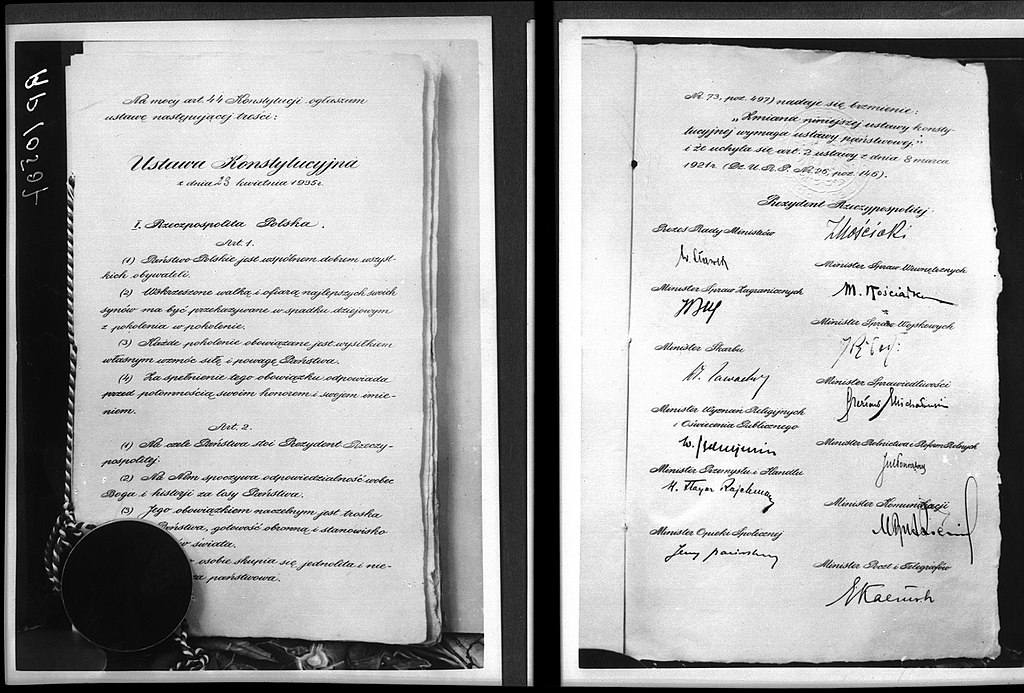 AP10597
Na mocy art. 44 Konstytucji ogłaszam
ustawę następującej treści:
Ustawa Konstytucyjna
z dnia 23 kwietnia 1935r.
I. Rzeczpospolita Polska.
Art. 1.
(1) Państwo Polskie jest wspólnem dobrem wszyst-
kich obywateli.
(2) Wskrzeszone walką i ofiarą najlepszych swoich
synów ma być przekazywane w spadku dziejowym
z pokolenia w pokolenie.
(3) Każde pokolenie obowiązane jest wysiłkiem
własnym wzmóc siłę i powagę Państwa.
(4) Za spełnienie tego obowiązku odpowiada
przed potomnością swoim honorem i swojem imie-
niem.
Art. 2.
(1) Na czele Państwa stoi Prezydent Rzeczy-
pospolitej.
(2) Na Nim spoczywa odpowiedzialność wobec
Boga i historji za losy Państwa.
(3) Jego obowiązkiem naczelnym jest troska
Państwa, gotowość obronną i stanowisko
w świata.
osobie skupia się jednolita i nie-
za państwowa.
Nr. 73, poz. 497) nadaje się brzmienie:
„Zmiana niniejszej ustawy konsty-
tucyjnej wymaga ustawy państwowej."
i że uchyla się art. 2 ustawy z dnia 8 marca
1921r. (Dz. U. R. P. Nr. 25, poz. 146).
Prezydent Rzeczypospolitej
I Mościcki
Prezes Rady Ministrów
W. Sławek
Minister Spraw Wewnętrznych
M. Kościałk
Minister Spraw Zagranicznych
Minister Spraw Wojskowych
Minister Skarbu
Wł. Zawadzki
Minister Sprawiedliwości
Czesław Michałowski
Minister Wyznań Religijnych
i Oświecenia Publicznego
W. Jędrzejewicz
Minister Rolnictwa i Reform Rolnych
Minister Przemysłu i Handlu
H. Floyar Rajchman
Minister Komunikacji
Minister Opieki Społecznej
Jerzy Paciorkowski
Minister Poczt i Telegrafów
EKaliński